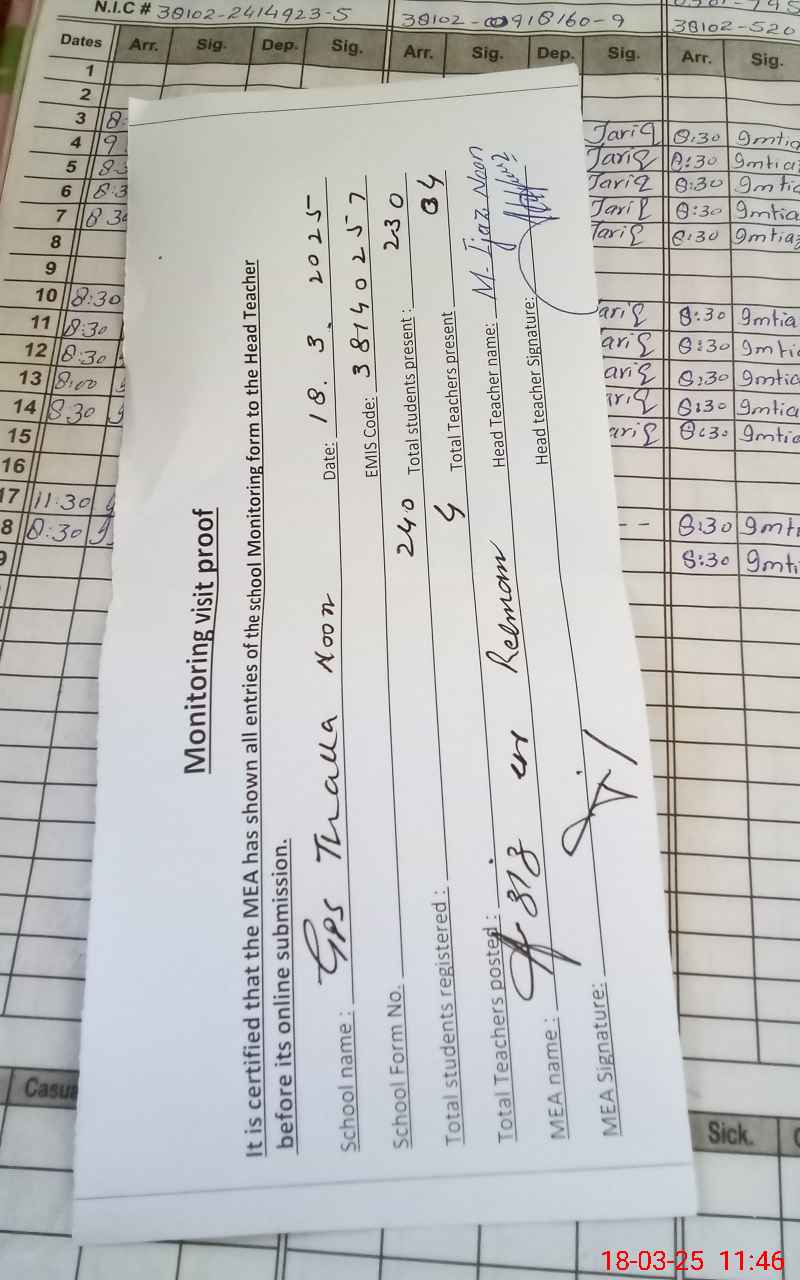 N.I.C # 38102-2414923-5 38102-0918160-9 38102-520
Dates Arr. Sig. Dep. Sig. Arr. Sig. Dep. Sig. Arr. Sig.
1
2
3 8:
4 9 Tariq 8:30 Imtia
5 8:3 Tariq 8:30 Imtiaz
6 8:3 Tariq 8:30 Imtia
7 8 30 Tariq 8:30 Imtia
8 Tariq 8:30 Imtiaz
9
10 8:30
11 8:30 ariq 8:30 Imtia
12 8:30 ariq 8:30 Imti
13 8:00 ariq 8:30 Imtia
14 8:30 ariq 8:30 Imtia
15 ariq 8:30 Imtia
16
17 11:30
8 8:30 -- 8:30 Imti
9 8:30 Imti
Monitoring visit proof
It is certified that the MEA has shown all entries of the school Monitoring form to the Head Teacher
before its online submission.
School name : GPS Thalla Noon Date: 18.3.2025
School Form No. EMIS Code: 38140257
Total students registered : 240 Total students present : 230
Total Teachers posted : 4 Total Teachers present 04
MEA name : Rehman Head Teacher name: M. Ijaz Noon
MEA Signature: Head teacher Signature:
Casua
Sick.
18-03-25 11:46